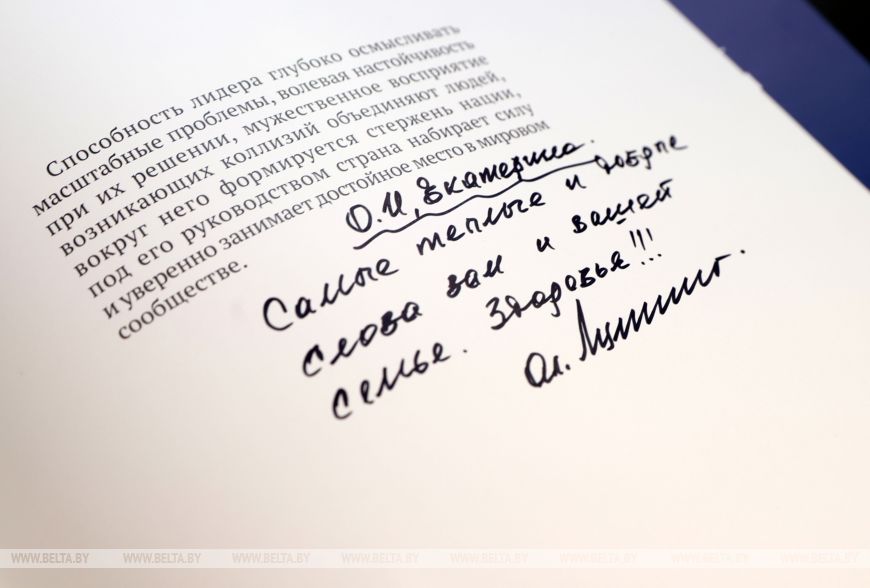 Способность лидера глубоко осмысливать
масштабные проблемы, волевая настойчивость
при их решении, мужественное восприятие
возникающих коллизий объединяют людей,
вокруг него формируется стержень нации,
под его руководством страна набирает силу
и уверенно занимает достойное место в мировом
сообществе.
О.И, Екатерина.
Самые теплые и добрые
слова вам и вашей
семье. Здоровья!!!
Ол.
WWW.BELTA.BY WWW.BELTA.BY WWW.BELTA.BY WWW.BELTA.BY WWW.BELTA.BY WWW.BELTA.BY WWW.BELTA.BY WWW.BELTA.BY